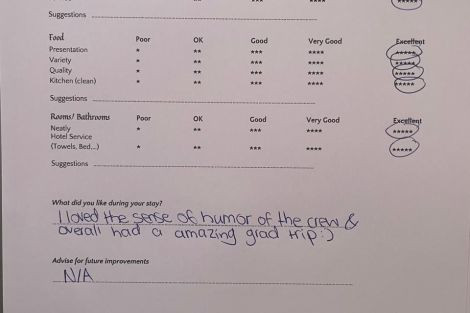 *****
Suggestions
Food Poor OK Good Very Good Excellent
Presentation * ** *** **** *****
Variety * ** *** **** *****
Quality * ** *** **** *****
Kitchen (clean) * ** *** **** *****
Suggestions
Rooms/ Bathrooms Poor OK Good Very Good Excellent
Neatly * ** *** **** *****
Hotel Service
(Towels, Bed...) * ** *** **** *****
Suggestions
What did you like during your stay?
I loved the sense of humor of the crew &
overall had a amazing grad trip :)
Advise for future improvements
N/A